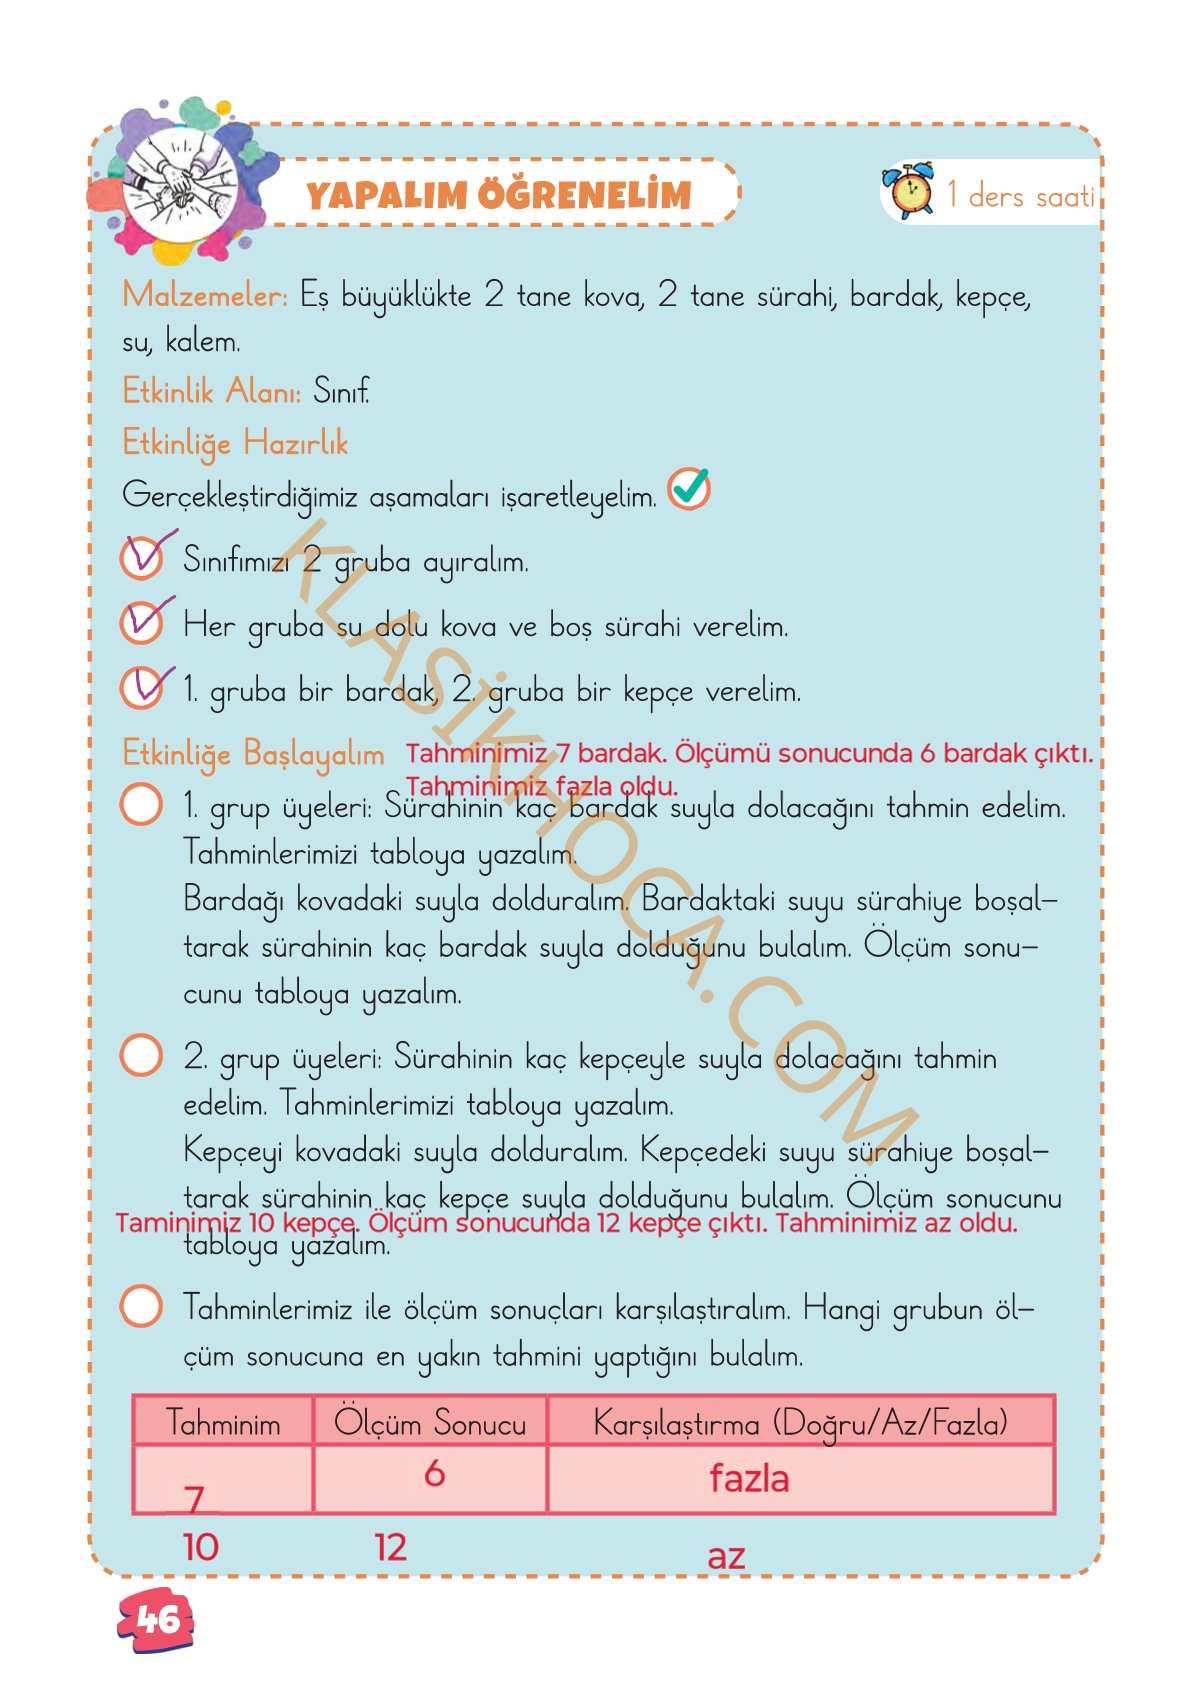 YAPALIM ÖĞRENELİM
1 ders saati
Malzemeler: Eş büyüklükte 2 tane kova, 2 tane sürahi, bardak, kepçe,
su, kalem.
Etkinlik Alanı: Sınıf.
Etkinliğe Hazırlık
Gerçekleştirdiğimiz aşamaları işaretleyelim.
Sınıfımızı 2 gruba ayıralım.
Her gruba su dolu kova ve boş sürahi verelim.
1. gruba bir bardak, 2. gruba bir kepçe verelim.
Etkinliğe Başlayalım
Tahminimiz 7 bardak. Ölçümü sonucunda 6 bardak çıktı.
Tahminimiz fazla oldu.
1. grup üyeleri: Sürahinin kaç bardak suyla dolacağını tahmin edelim.
Tahminlerimizi tabloya yazalım.
Bardağı kovadaki suyla dolduralım. Bardaktaki suyu sürahiye boşal-
tarak sürahinin kaç bardak suyla dolduğunu bulalım. Ölçüm sonu-
cunu tabloya yazalım.
2. grup üyeleri: Sürahinin kaç kepçeyle suyla dolacağını tahmin
edelim. Tahminlerimizi tabloya yazalım.
Kepçeyi kovadaki suyla dolduralım. Kepçedeki suyu sürahiye boşal-
tarak sürahinin kaç kepçe suyla dolduğunu bulalım. Ölçüm sonucunu
Taminimiz 10 kepçe. Ölçüm sonucunda 12 kepçe çıktı. Tahminimiz az oldu.
tabloya yazalım.
Tahminlerimiz ile ölçüm sonuçları karşılaştıralım. Hangi grubun öl-
çüm sonucuna en yakın tahmini yaptığını bulalım.
Tahminim Ölçüm Sonucu Karşılaştırma (Doğru/Az/Fazla)
7 6 fazla
10 12 az
46
KLASİKHOCA.COM